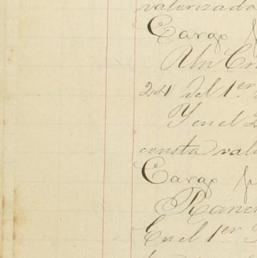 valorizado
Cargo
Un Cr
24 del 1er
Y en el 2
consta val
Cargo
Ranc
En el 1er